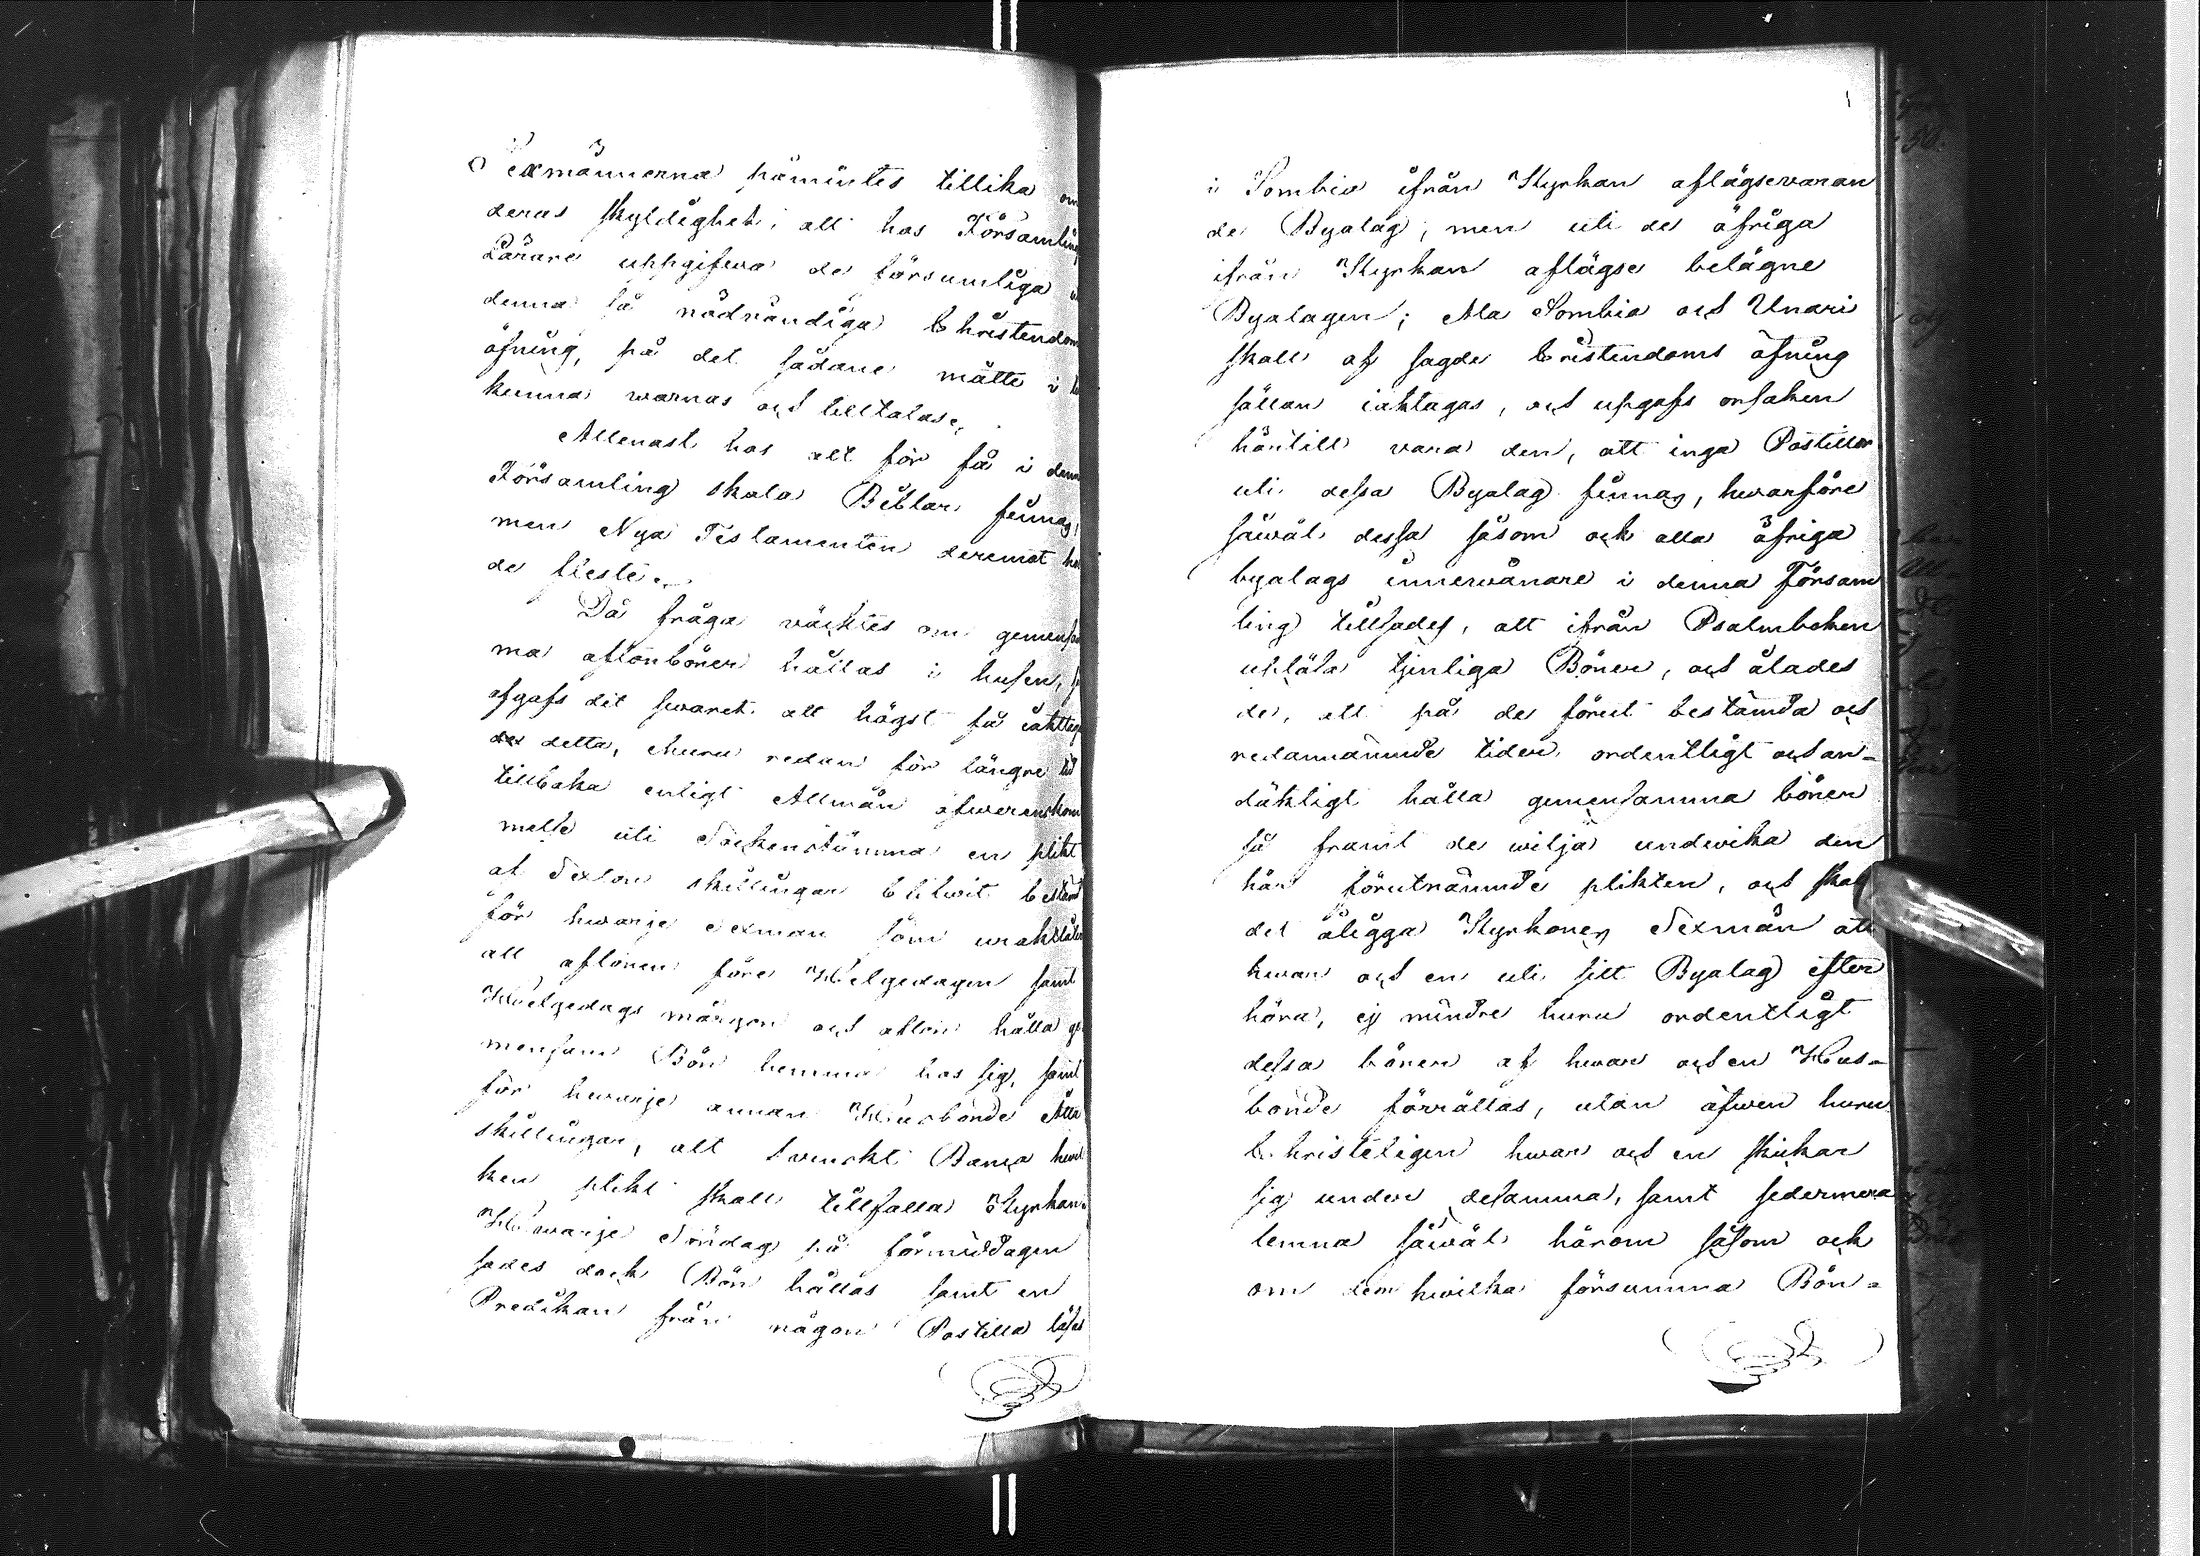 Sexmännerna påmintes tillika om
deras skyldighet, att hos Församling
Lärare uppgifwa de försumliga
denna så nödvändiga Christendom
öfning, på det sådane måtte i
kunna warnas och tilltalas.
Allenast hos allt för få i denna
Församling skola Biblar finnas,
men Nya Testamenten deremot hos
de flesta.
Då fråga väcktes om gemensam
ma aftonböner hållas i husen,
afgafs det swaret att högst få iakttaga
detta, ehuru redan för längre tid
tillbaka enligt Allmän öfwerenskom
melse uti Sockenstämma en plikt
af Sexton skillingar blifwit bestämd
för hwarje Sexman som uraktlåter
att aftonen före Helgedagen samt
Helgedags märgon och afton hålla ge
mensam Bön hemma hos sig, samt
för hwarje annan Husbonde Åtta
skillingar, allt Svenskt Banco hwil
ken plikt skall tillfalla Kyrkan.
Hwarje Söndag på förmiddagen
sades dock Bön hållas samt en
Predikan från någon Postilla läsas
i Sombio ifrån Kyrkan aflägsevaran
de Byalag; men uti de öfriga
ifrån Kyrkan aflägse belägne
Byalagen; Ala Sombio och Unari
skall af sagde Cristendoms öfning
sällan iakttagas, och upgafs orsaken
härtill vara den, att inga Postillor
uti dessa Byalag finnas, hwarföre
såwäl dessa såsom ock alla öfriga
byalags innevånare i denna Försam
ling tillsades, att ifrån Psalmboken
upläsa tjenliga Böner, och ålades
de, att på de förut bestämda och
redannämnde tider ordentligt och an-
däktigt hålla gemensamma böner
så framt de wilja undwika den
här förutnämnde plikten, och skall
det åligga Kyrkones Sexmän att
hwar och en uti sitt Byalag efter
höra, ej mindre huru ordentligt
dessa böner af hwar och en Hus-
bonde förrättas, utan äfwen huru
Christeligen hwar och en skickar
sig under desamma, samt sedermera
lemna såwäl härom såsom ock
om dem hwilka försumma Bön-